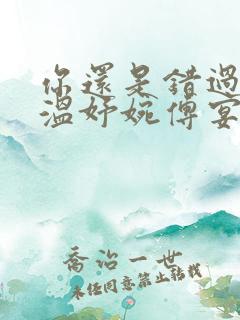 你還是錯過
溫妤婉傅宴
喬治一世
未经同意禁止转载